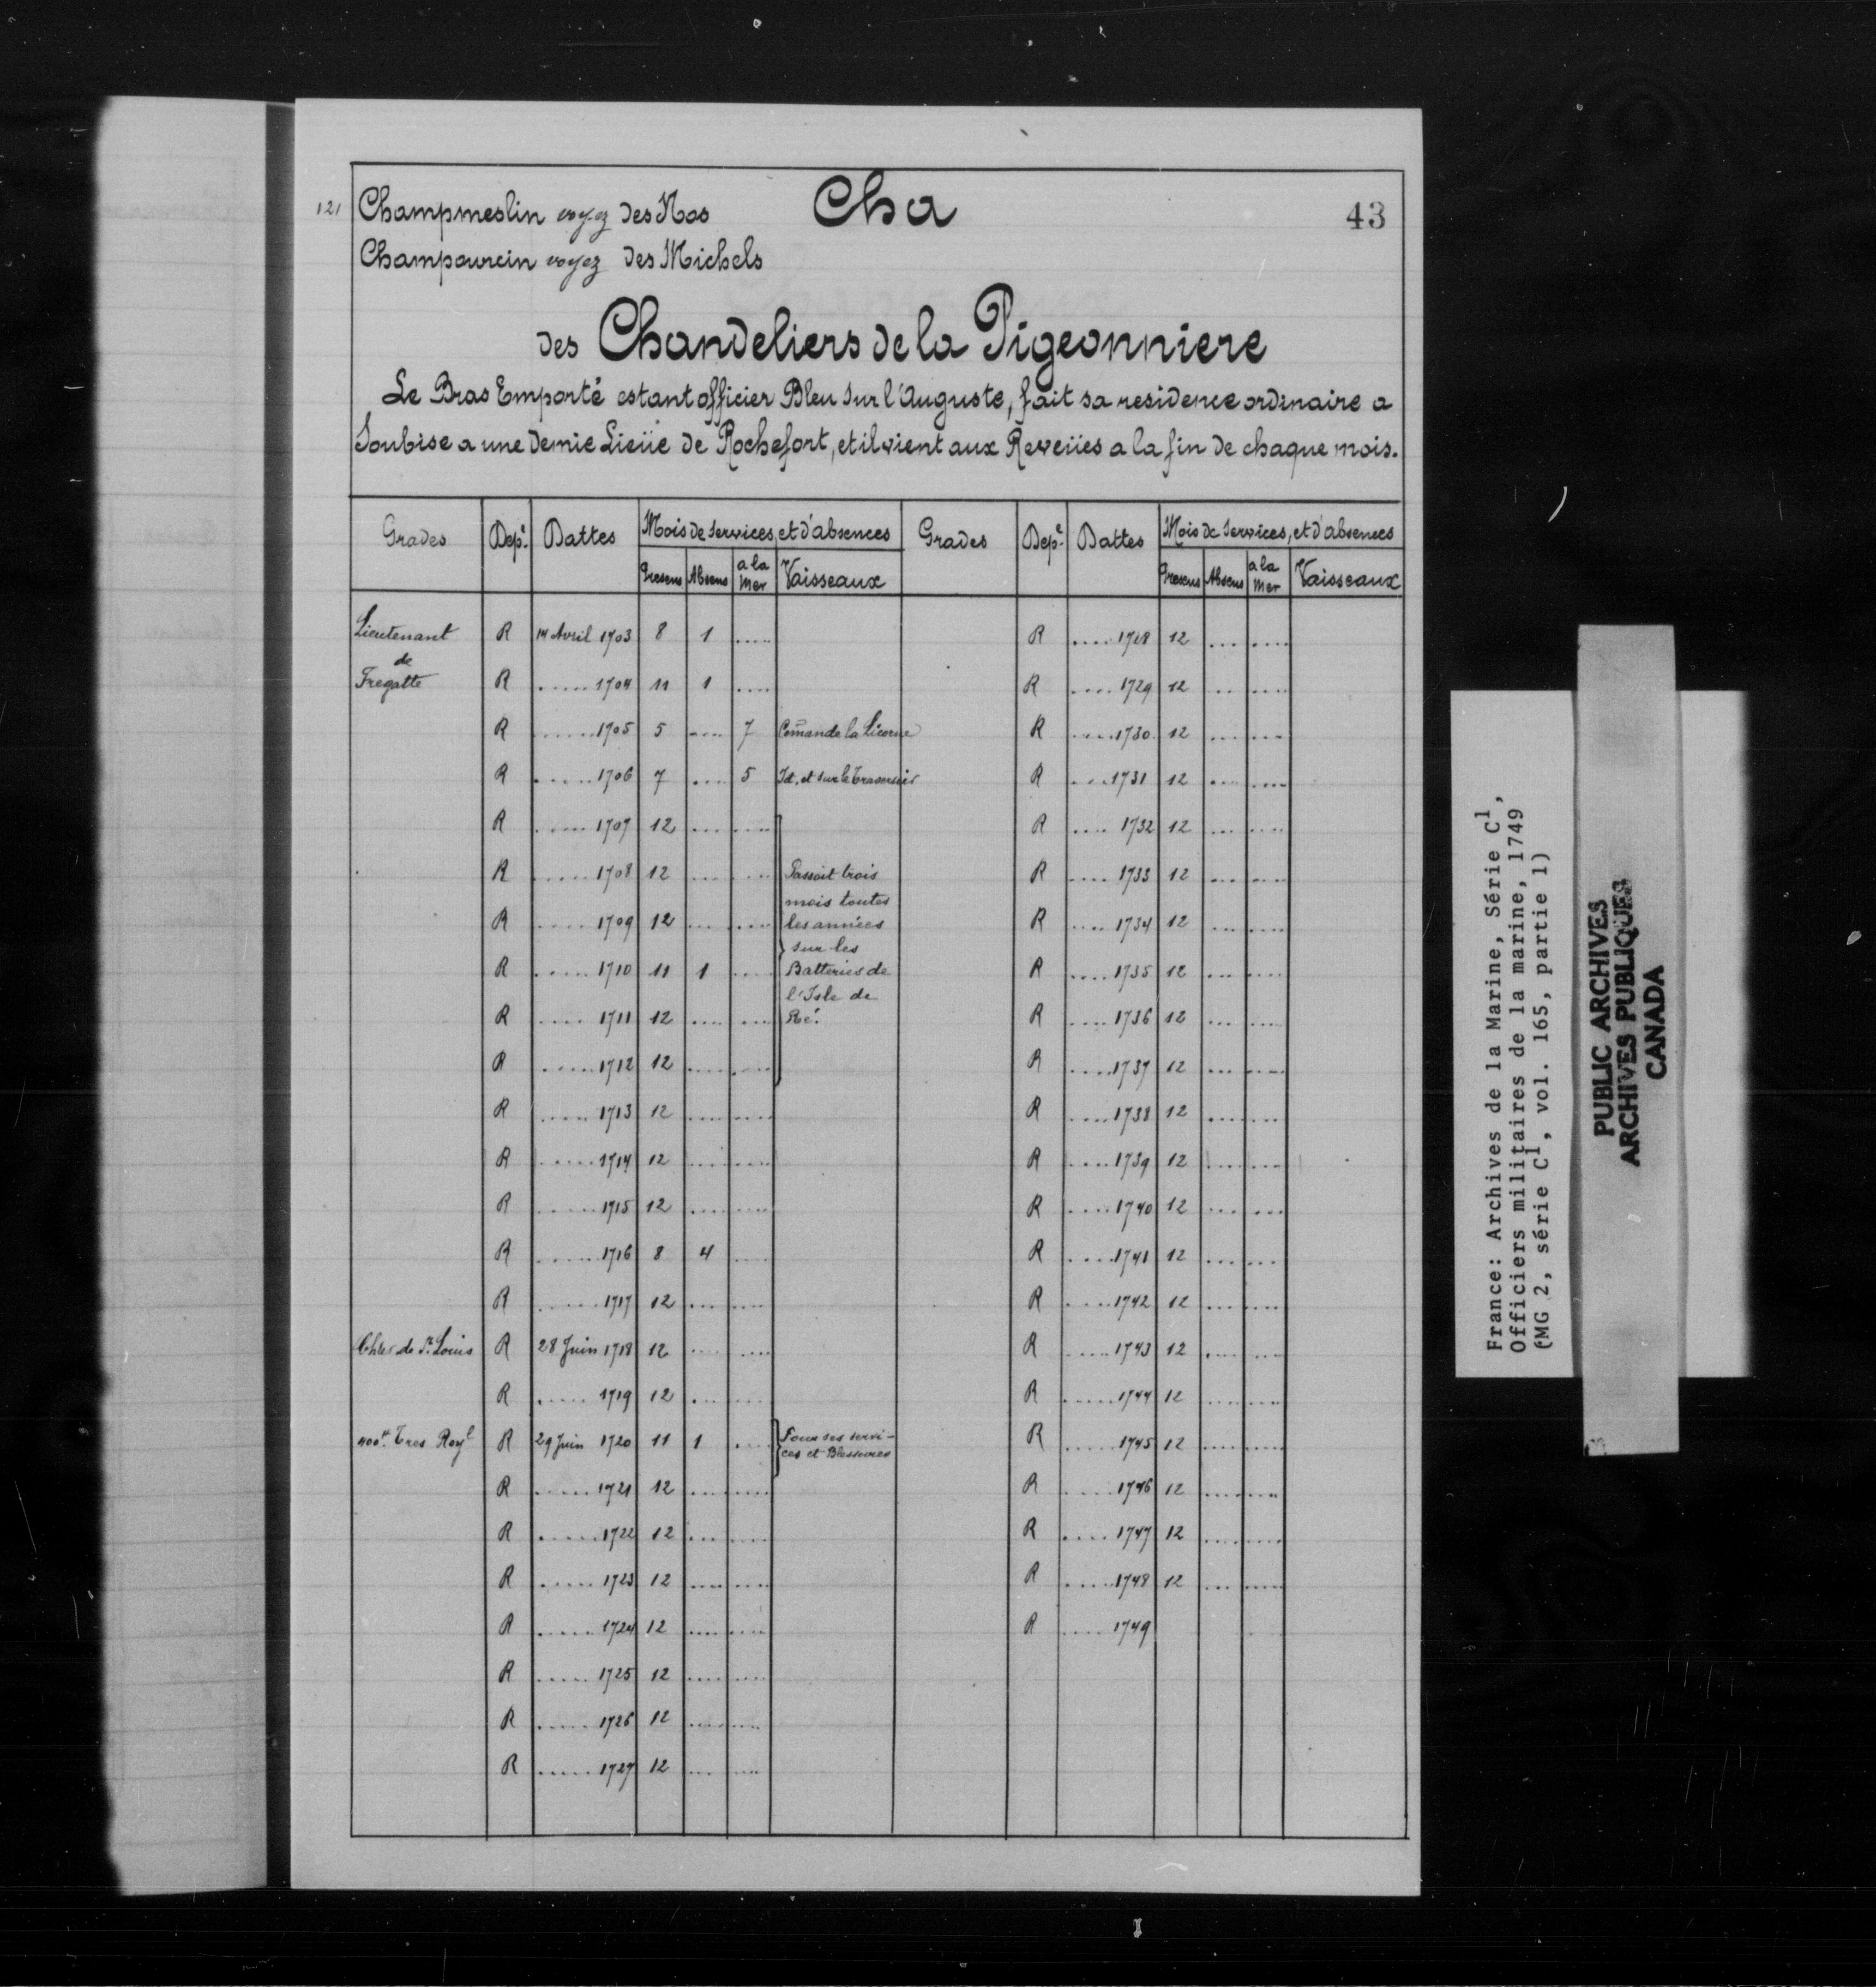 121 Champmeslin voyez des Nos Cha 43
Champourcin voyez des Michels
des Chandeliers de la Pigeonniere
Le Bras Emporté estant officier Bleu sur l'Auguste, fait sa residence ordinaire a
Soubise a une demie Lieüe de Rochefort, et il vient aux Reveües a la fin de chaque mois.
Grades Dep.t Dattes Mois de services, et d'absences Grades Dep.t Dattes Mois de Services, et d'absences
Presens Absens a la Mer Vaisseaux Presens Absens a la Mer Vaisseaux
Lieutenant R 14 Avril 1703 8 1 ..... R .... 1728 12 ... ....
de
Fregatte R ...... 1704 11 1 .... R .... 1729 12 ... ....
R ...... 1705 5 .... 7 Com̃ande la Licorne R .... 1730 12 ... ....
R ...... 1706 7 .... 5 Id. et sur le R .... 1731 12 ... ....
R ..... 1707 12 .... ..... R .... 1732 12 ... ....
R ..... 1708 12 .... .... Passoit trois R .... 1733 12 ... ....
mois toutes
R ..... 1709 12 .... .... les années R .... 1734 12 ... ....
sur les
R ..... 1710 11 1 .... Batteries de R .... 1735 12 ... ....
l'Isle de
R ..... 1711 12 .... .... Ré. R .... 1736 12 ... ....
R ...... 1712 12 .... .... R .... 1737 12 ... ....
R ...... 1713 12 .... .... R .... 1738 12 .... ...
R ...... 1714 12 .... .... R .... 1739 12 .... ...
R ...... 1715 12 .... .... R .... 1740 12 ... ...
R ...... 1716 8 4 .... R .... 1741 12 .... ...
R ...... 1717 12 .... .... R .... 1742 12 ... ....
Chler de St. Louis R 28 Juin 1718 12 .... .... R .... 1743 12 .... ...
R ..... 1719 12 .... .... R ..... 1744 12 .... ....
400tt Tres. Royl R 29 Juin 1720 11 1 .... Pour ses servi- R ..... 1745 12 .... ....
ces et Blessures
R ...... 1721 12 .... .... R ..... 1746 12 .... ....
R ...... 1722 12 .... .... R .... 1747 12 .... ....
R ...... 1723 12 .... .... R ..... 1748 12 ... ....
R ...... 1724 12 .... .... R .... 1749
R ..... 1725 12 .... ....
R ..... 1726 12 .... ....
R ..... 1727 12 .... ....
France: Archives de la Marine, Série C1,
Officiers militaires de la marine, 1749
(MG 2, série C1, vol. 165, partie 1)
PUBLIC ARCHIVES
ARCHIVES PUBLIQUES
CANADA